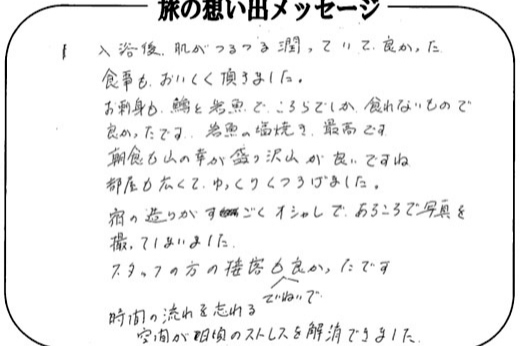 旅の想い出メッセージ
入浴後、肌がつるつる潤っていて、良かった
食事も、おいしく頂きました。
お刺身も、鱒と岩魚で、こちらでしか、食れないもので
良かったです、岩魚の塩焼き、最高です
朝食も山の幸が盛り沢山が良いですね
部屋も広くて、ゆっくりくつろげました。
宿の造りがすごくオシャレで、あちこちで写真を
撮ってしまいました。
スタッフの方の接客もていねいで良かったです
時間の流れを忘れる
空間が日頃のストレスを解消できました。